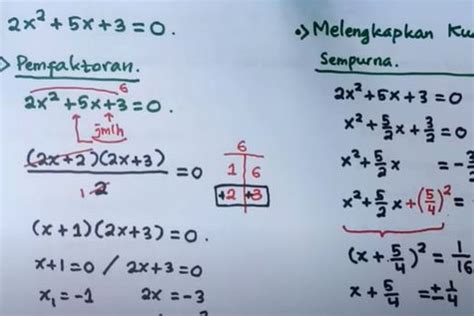 2x² + 5x + 3 = 0.
Pemfaktoran.
6
2x² + 5x + 3 = 0.
jmlh
(2x+2)(2x+3) / 2 = 0
1
6
1 | 6
+2 | +3
(x+1)(2x+3) = 0.
x+1=0 / 2x+3=0
x₁ = -1 2x = -3
•) Melengkapkan
Sempurna.
2x² + 5x + 3 = 0
x² + 5/2 x + 3/2 = 0
x² + 5/2 x = -3
x² + 5/2 x + (5/4)² =
(x + 5/4)² = 1/16
x + 5/4 = ± 1/4